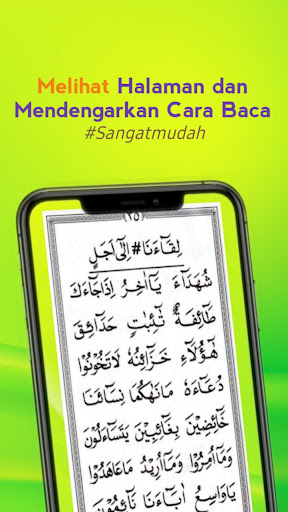 Melihat Halaman dan
Mendengarkan Cara Baca
#Sangatmudah
(٢٥)
لِقَاۤءَنَا # اِلٰىٓ اَجَلٍ
شُهَدَاۤءَ يٰۤاٰخِرُ اِذَاجَاۤءَكَ
طَاۤئِفَةٌ ثَبَتَتْ حَدَاۤئِقَ
هٰٓؤُلَاۤءِ خَزَاۤئِنُهٗ لَاتَخُوْنُوْا
دُعَاۤءَهٗ مَانَهٰكُمَا نِسَاۤئَنَا
خَاۤئِضِيْنَ بِغَاۤئِبِيْنَ يَتَسَاۤءَلُوْنَ
وَمَاۤاُمِرُوْا وَمَاۤاُرِيْدُ مَاعَاهَدُوْا
يَاوَاسِعُ اٰبَاۤءَنَا نَاۤئِمُوْنَ